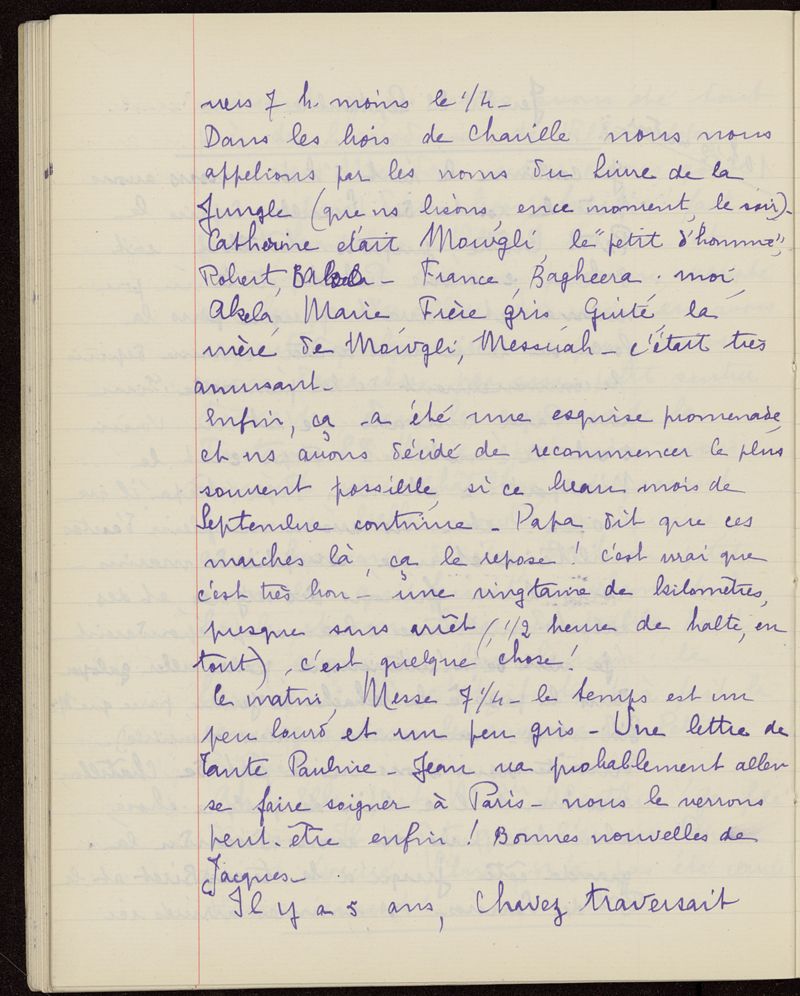 vers 7 h. moins le 1/4 -
Dans les bois de Chaville nous nous
appelions par les noms du livre de la
Jungle (que ns lisons, en ce moment, le soir) -
Catherine était Mowgli, le "petit d'homme",
Robert, - France, Bagheera. moi,
Akela, Marie Frère gris, Guité, la
mère de Mowgli, Messuah - c'était très
amusant -
Enfin, ça a été une exquise promenade
et ns avons décidé de recommencer le plus
souvent possible, si ce beau mois de
Septembre continue - Papa dit que ces
marches là, ça le repose ! c'est vrai que
c'est très bon - une vingtaine de kilomètres,
presque sans arrêt (1/2 heure de halte, en
tout), c'est quelque chose !
Ce matin, Messe 7 1/4 - le temps est un
peu lourd et un peu gris - Une lettre de
Tante Pauline - Jean va probablement aller
se faire soigner à Paris - nous le verrons
peut-être enfin ! Bonnes nouvelles de
Jacques -
Il y a 5 ans, Chavez traversait